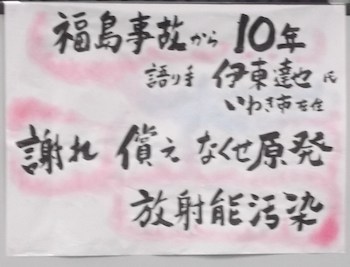 福島事故から 10年
語り手 伊東達也 氏
いわき市在住
謝れ 償え なくせ原発
放射能汚染